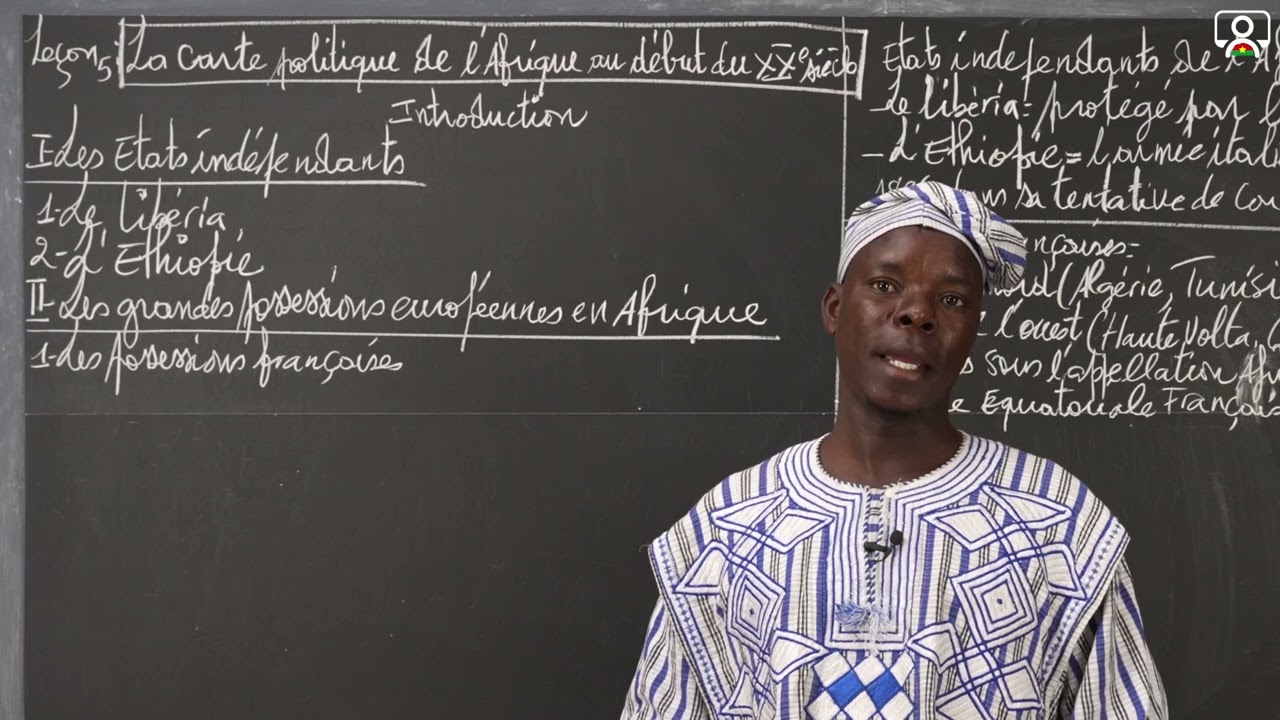 Leçon 5: La Carte politique de l'Afrique au début du XXe siècle
Introduction
I-Les Etats indépendants
1-Le libéria
2-L'Ethiopie
II-Les grandes possessions européennes en Afrique
1-Les possessions françaises
Etats indépendants de l'A
-Le libéria= protégé par l
-L'Ethiopie = l'armée ital
sa tentative de
nçaises=
(Algérie, Tunisi
l'ouest (Haute Volta,
sous l'appellation Afri
Equatoriale Français